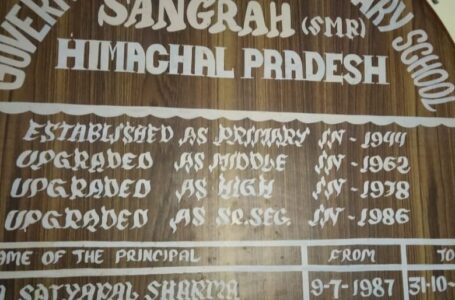 GOVERN ARY SCHOOL
SANGRAH (SMR)
HIMACHAL PRADESH
ESTABLISHED AS PRIMARY IN - 1944
UPGRADED AS MIDDLE IN - 1962
UPGRADED AS HIGH IN - 1978
UPGRADED AS SR.SEC. IN - 1986
AME OF THE PRINCIPAL FROM TO
SATYAPAL SHARMA 9-7-1987 31-10-